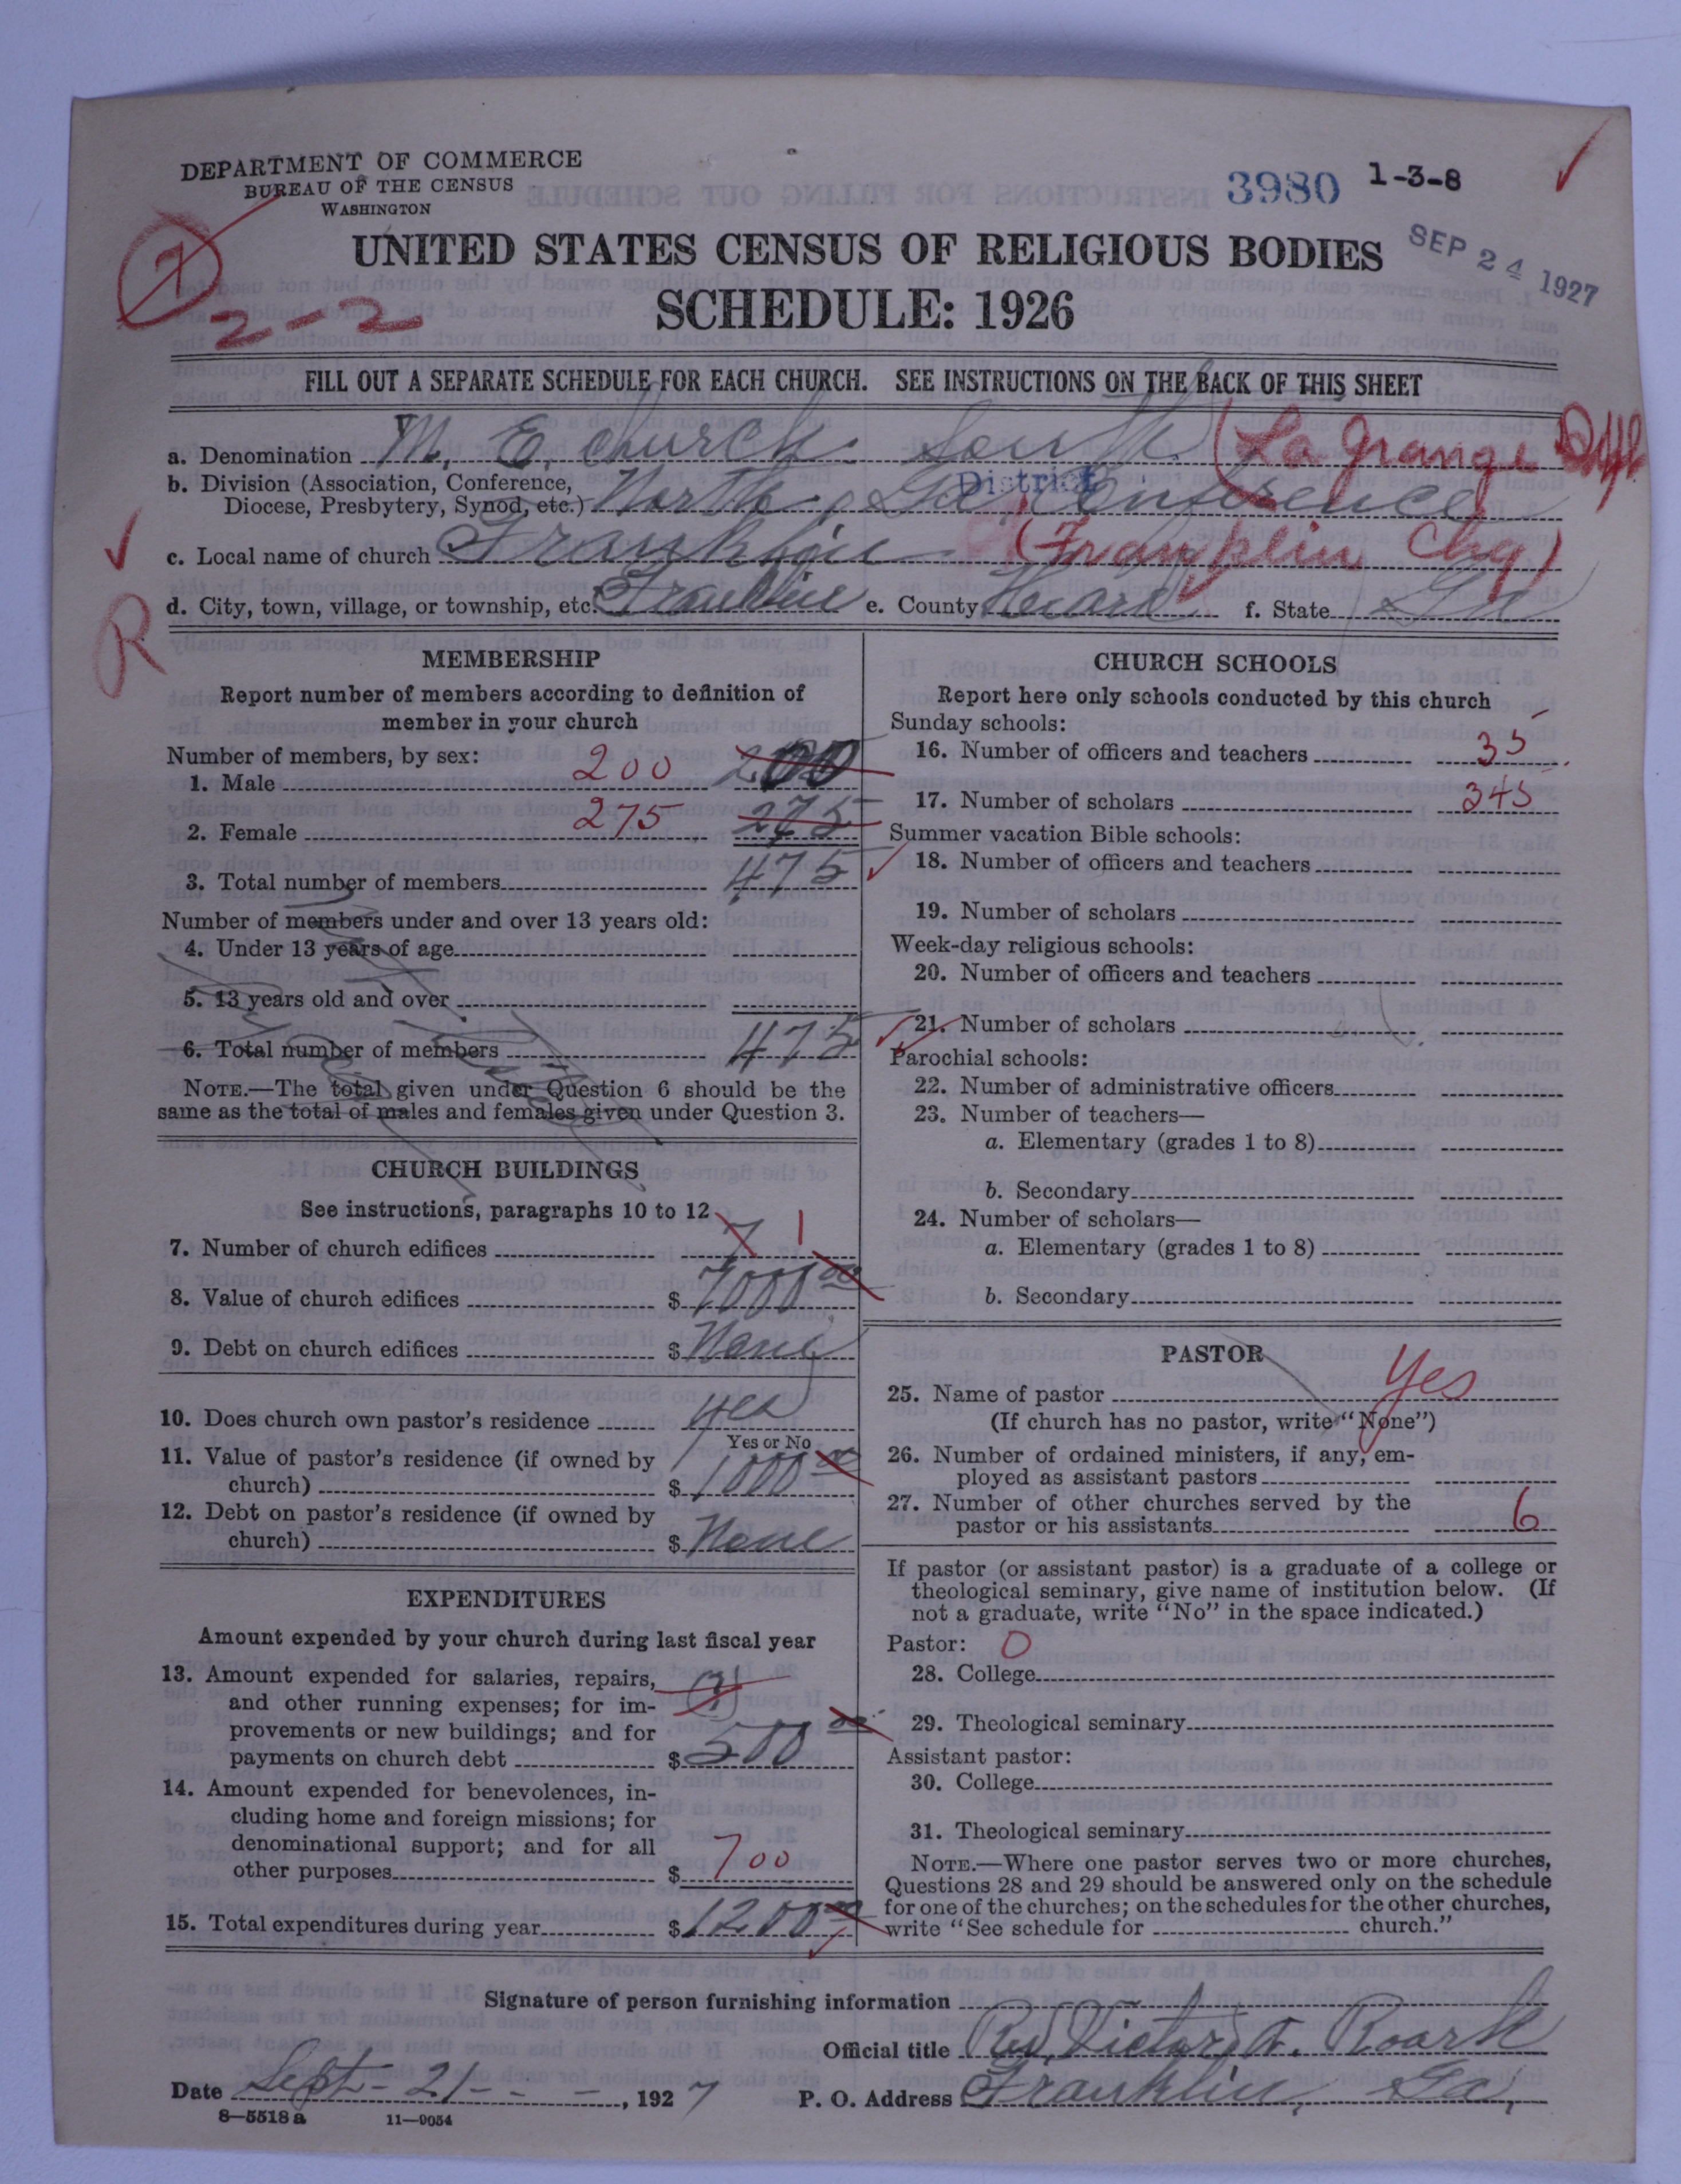 DEPARTMENT OF COMMERCE
BUREAU OF THE CENSUS
WASHINGTON
3980 1-3-8
SEP 24 1927
7
2-2
UNITED STATES CENSUS OF RELIGIOUS BODIES
SCHEDULE: 1926
FILL OUT A SEPARATE SCHEDULE FOR EACH CHURCH. SEE INSTRUCTIONS ON THE BACK OF THIS SHEET
a. Denomination M. E. Church South (La Grange
b. Division (Association, Conference,
Diocese, Presbytery, Synod, etc.) North Ga. Conference
District
c. Local name of church Franklin (Franklin Chg)
d. City, town, village, or township, etc. Franklin e. County Heard f. State Ga
R
MEMBERSHIP
Report number of members according to definition of
member in your church
Number of members, by sex:
1. Male 200 200
2. Female 275 275
3. Total number of members 475
Number of members under and over 13 years old:
4. Under 13 years of age
5. 13 years old and over
6. Total number of members 475
NOTE.—The total given under Question 6 should be the
same as the total of males and females given under Question 3.
CHURCH BUILDINGS
See instructions, paragraphs 10 to 12
7. Number of church edifices 7 1
8. Value of church edifices $ 7000 00
9. Debt on church edifices $ None
10. Does church own pastor's residence yes
Yes or No
11. Value of pastor's residence (if owned by
church) $ 1000 00
12. Debt on pastor's residence (if owned by
church) $ None
EXPENDITURES
Amount expended by your church during last fiscal year
13. Amount expended for salaries, repairs,
and other running expenses; for im-
provements or new buildings; and for
payments on church debt $ 500 00
14. Amount expended for benevolences, in-
cluding home and foreign missions; for
denominational support; and for all
other purposes $ 700
15. Total expenditures during year $ 1200 00
CHURCH SCHOOLS
Report here only schools conducted by this church
Sunday schools:
16. Number of officers and teachers 35
17. Number of scholars 345
Summer vacation Bible schools:
18. Number of officers and teachers
19. Number of scholars
Week-day religious schools:
20. Number of officers and teachers
21. Number of scholars
Parochial schools:
22. Number of administrative officers
23. Number of teachers—
a. Elementary (grades 1 to 8)
b. Secondary
24. Number of scholars—
a. Elementary (grades 1 to 8)
b. Secondary
PASTOR
25. Name of pastor Yes
(If church has no pastor, write "None")
26. Number of ordained ministers, if any, em-
ployed as assistant pastors
27. Number of other churches served by the
pastor or his assistants 6
If pastor (or assistant pastor) is a graduate of a college or
theological seminary, give name of institution below. (If
not a graduate, write "No" in the space indicated.)
Pastor: 0
28. College
29. Theological seminary
Assistant pastor:
30. College
31. Theological seminary
NOTE.—Where one pastor serves two or more churches,
Questions 28 and 29 should be answered only on the schedule
for one of the churches; on the schedules for the other churches,
write "See schedule for church."
Signature of person furnishing information
Official title Rev. Victor A. Roark
Date Sept - 21 - - -, 1927 P. O. Address Franklin, Ga,
8—5518 a 11—9054